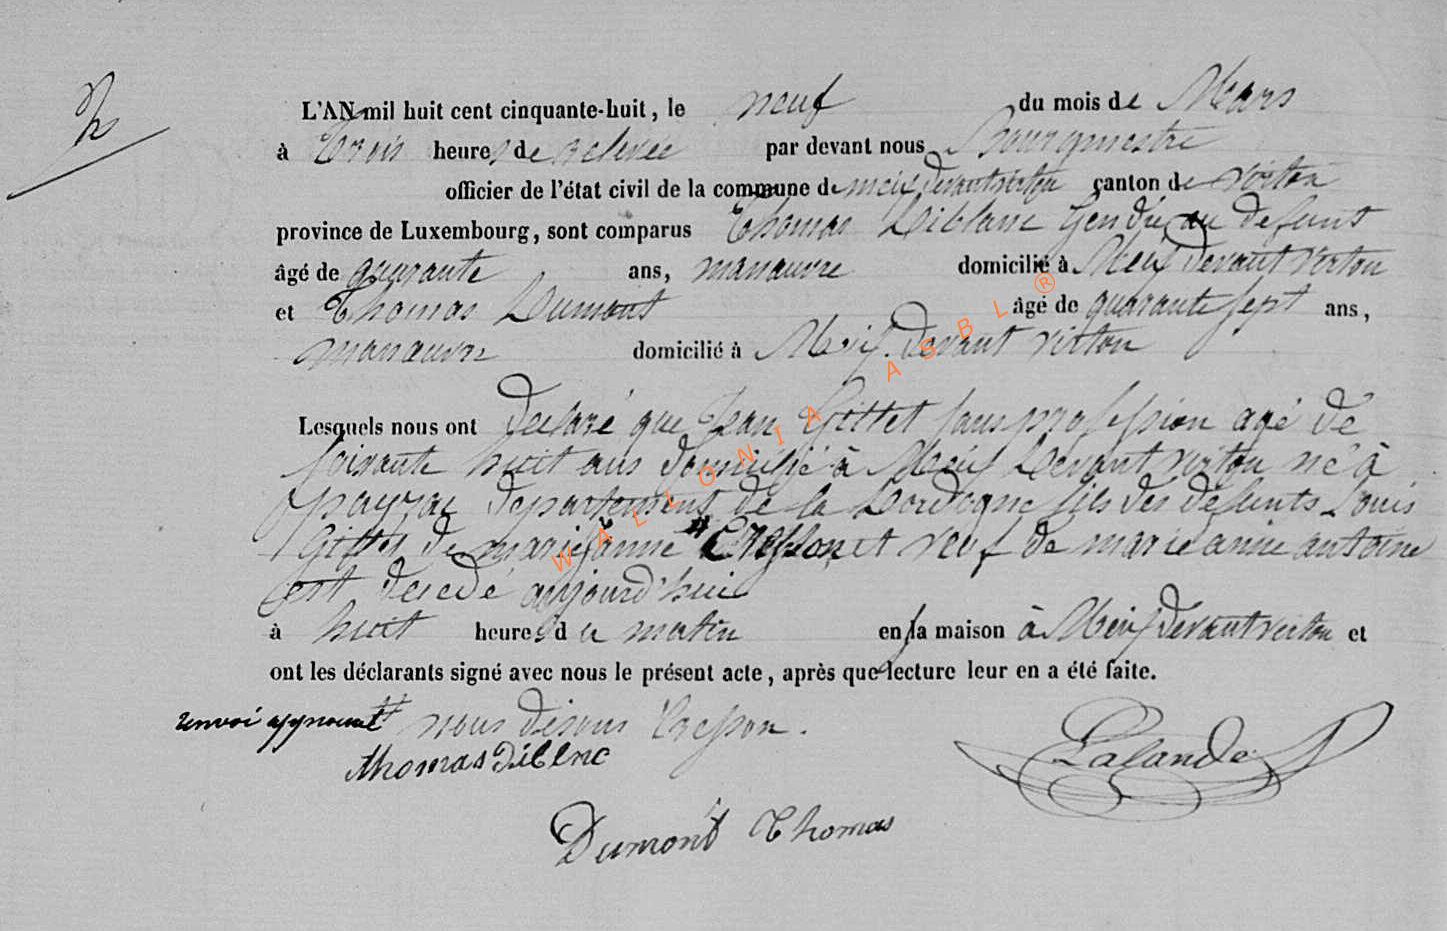 L'AN mil huit cent cinquante-huit, le neuf du mois de Mars
à Trois heures de relevée par devant nous Bourgmestre
officier de l'état civil de la commune de meix devant virton canton de virton
province de Luxembourg, sont comparus Thomas Diblanc Gendre au defunt
âgé de quarante ans, manœuvre domicilié à Meix devant virton
et Thomas Dumont âgé de quarante sept ans,
manœuvre domicilié à Meix devant virton
Lesquels nous ont declaré que Jean Gittet sans profession agé de
soixante huit ans domicilié à Meix devant virton né à
payzac departement de la Dordogne fils des defunts Louis
de marie anne # et veuf de marie anne antoine
est décédé aujourd'hui
à huit heures du matin en la maison à Meix devant virton et
ont les déclarants signé avec nous le présent acte, après que lecture leur en a été faite.
renvoi approuvé # nous disons Cresson.
Thomas Diblnc
Lalande
Dumont Thomas
WALLONIA ASBL ®